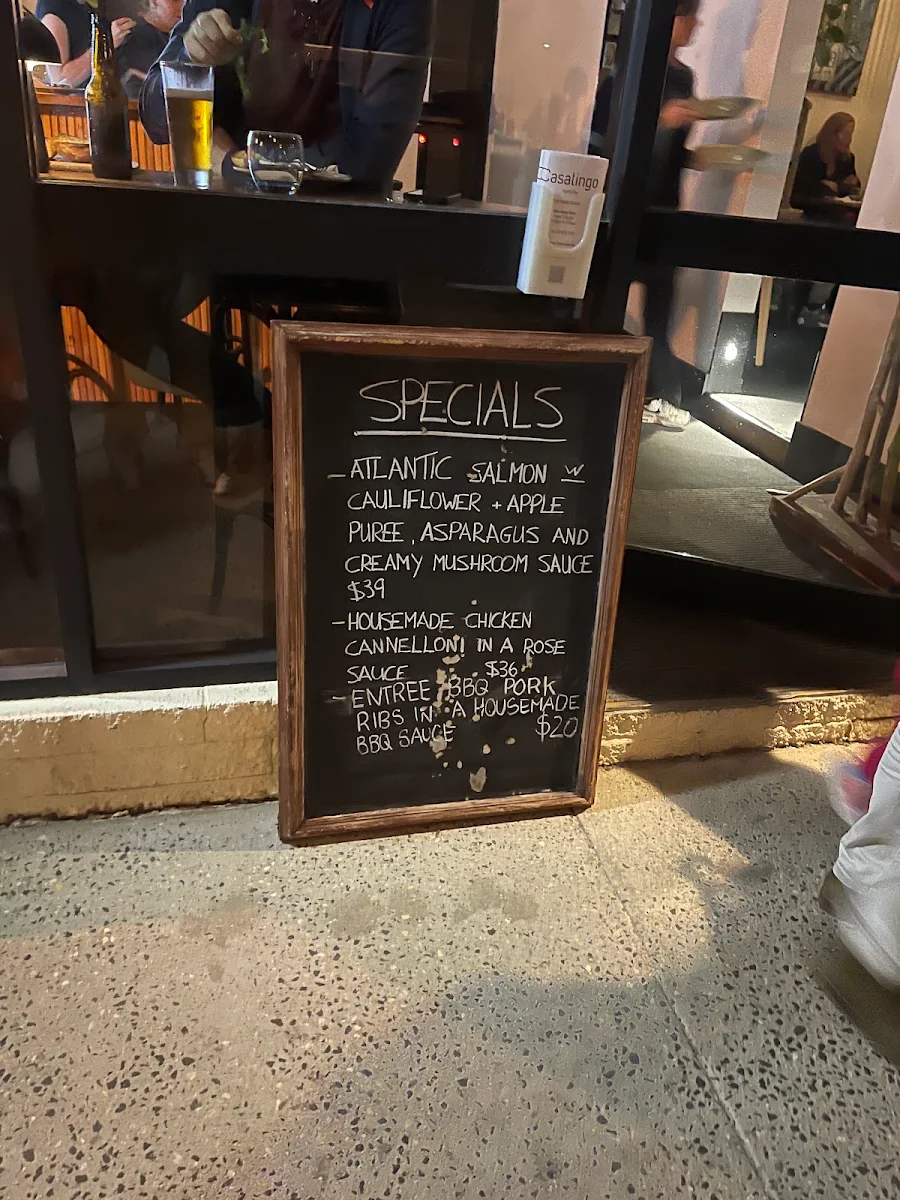 Casalingo
SPECIALS
- ATLANTIC SALMON W
CAULIFLOWER + APPLE
PUREE, ASPARAGUS AND
CREAMY MUSHROOM SAUCE
$39
- HOUSEMADE CHICKEN
CANNELLONI IN A ROSE
SAUCE $36
- ENTREE BBQ PORK
RIBS IN A HOUSEMADE
BBQ SAUCE $20